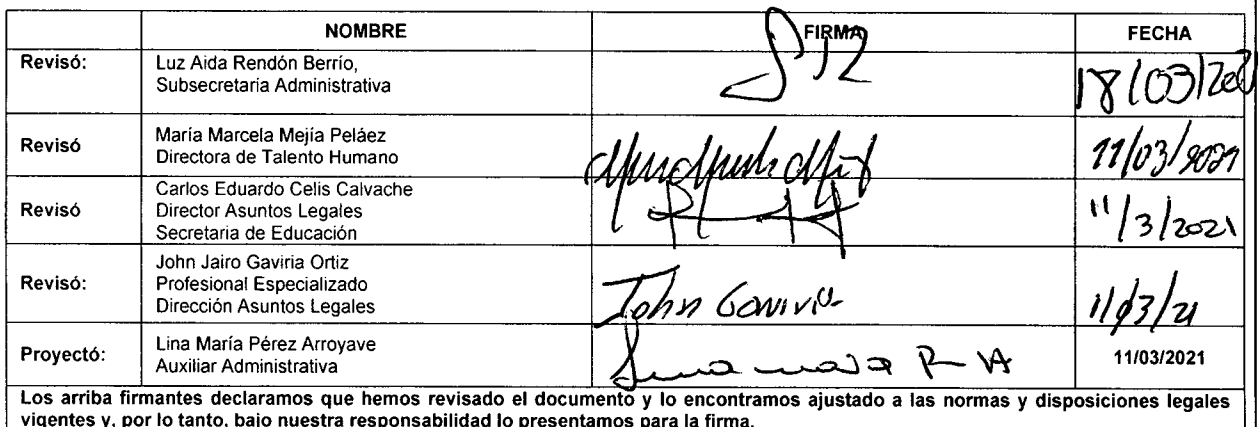 NOMBRE FIRMA FECHA
Revisó: Luz Aida Rendón Berrío,
Subsecretaria Administrativa
18/03/202
Revisó María Marcela Mejía Peláez
Directora de Talento Humano
11/03/2021
Revisó Carlos Eduardo Celis Calvache
Director Asuntos Legales
Secretaria de Educación
11/3/2021
Revisó: John Jairo Gaviria Ortiz
Profesional Especializado
Dirección Asuntos Legales
John Gaviria
11/03/21
Proyectó: Lina María Pérez Arroyave
Auxiliar Administrativa
11/03/2021
Los arriba firmantes declaramos que hemos revisado el documento y lo encontramos ajustado a las normas y disposiciones legales
vigentes y, por lo tanto, bajo nuestra responsabilidad lo presentamos para la firma.